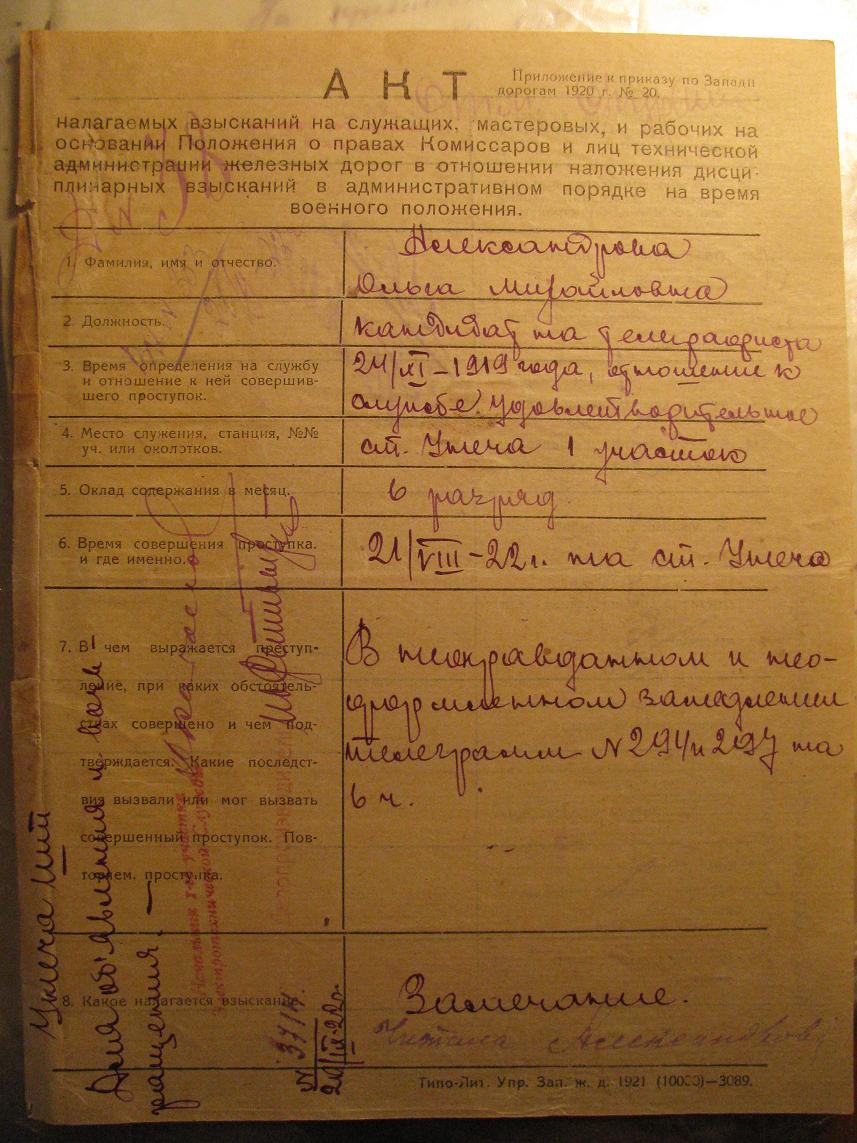 АКТ
Приложение к приказу по Западн
дорогам 1920 г. № 20.
налагаемых взысканий на служащих, мастеровых, и рабочих на
основании Положения о правах Комиссаров и лиц технической
администрации железных дорог в отношении наложения дисци-
плинарных взысканий в административном порядке на время
военного положения.
1. Фамилия, имя и отчество.
Александрова
Ольга Михайловна
2. Должность.
кандидат на телеграфиста
3. Время определения на службу
и отношение к ней совершив-
шего проступок.
24/XI–1919 года, отношение к
службе удовлетворительное
4. Место служения, станция, №№
уч. или околотков.
ст. Унеча 1 участок
5. Оклад содержания в месяц.
6 разряд.
6. Время совершения проступка.
и где именно.
21/VIII–22 г. на ст. Унеча
7. В чем выражается преступ-
ление, при каких обстоятель-
ствах совершено и чем под-
тверждается. Какие последст-
вия вызвали или мог вызвать
совершенный проступок. Пов-
торяем. проступка.
В неоправданном и нео-
формленном замедлении
телеграмм N 294 и 297 на
6 ч.
8. Какое налагается взыскание.
Замечание.
Читала Александрова
Типо-Лит. Упр. Зап. ж. д. 1921 (10000)—3089.
Унеча
Для об'явления и
ращения.
Начальник 1-го участка
Электротехнической Службы
Делопроизводитель
N 3714
20/IX-22 г.